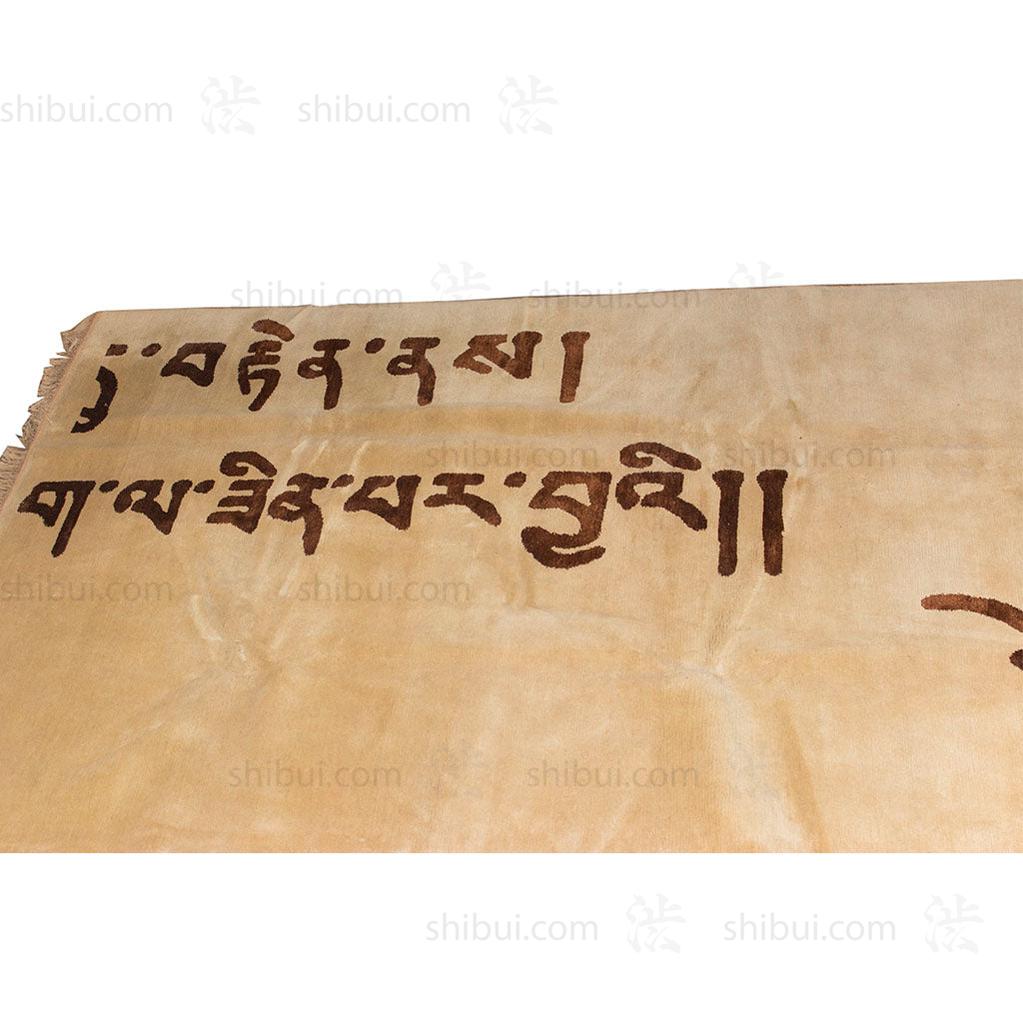 shibui.com 渋 shibui.com 渋
shibui.com 渋 shibui.com 渋
བརྟེན་ནས།
shibui.com 渋 shibui.com 渋
ག་ལ་ཟིན་པར་བྱའི།།
shibui.com 渋 shibui.com 渋
shibui.com 渋 shibui.com 渋
shibui.com 渋 shibui.com 渋